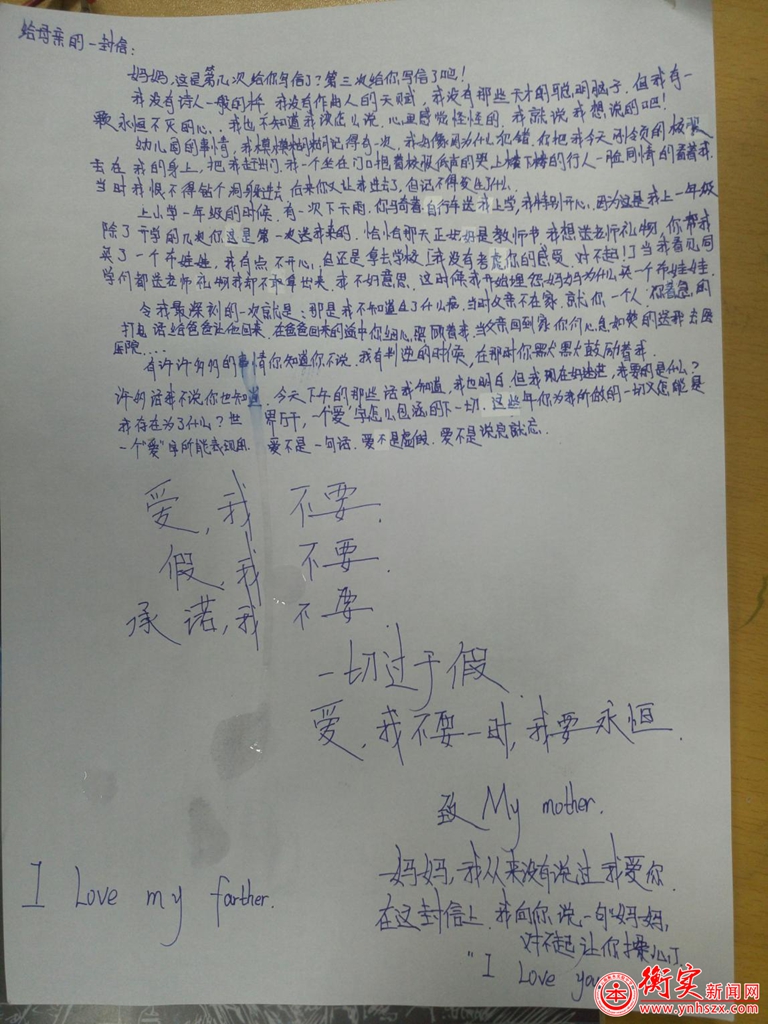 给母亲的一封信:
妈妈,这是第几次给你写信了?第三次给你写信了吧!
我没有诗人一般的 我没有作曲人的天赋,我没有那些天才的聪明脑子,但我有一
颗永恒不灭的心。我也不知道我该怎么说,心里感觉怪怪的,我就说我想说的吧!
幼儿园的事情,我模模糊糊记得有一次,我好像因为什么犯错,你把我今天
丢在我的身上,把我赶出门,我一个坐在门口抱着 低声的哭,上楼下楼的行人一脸同情的看着我,
当时我恨不得钻个洞躲进去,后来你又让我进去了,但记不得发生了什么。
上小学一年级的时候,有一次下大雨,你骑着自行车送我上学,我特别开心,因为这是我上一年级
除了开学的几次你这是第一次送我来的,恰恰那天正好是教师节,我想送老师礼物,你帮我
买了一个布娃娃,我有点不开心,但还是拿去学校[我没有考虑你的感受,对不起!]当我看见同
学们都送老师礼物我却不敢拿出来,我不好意思,这时候我开始埋怨妈妈为什么买一个布娃娃。
令我最深刻的一次就是:那是我不知道生了什么病,当时父亲不在家,就你一个人,你着急的
打电话给爸爸让他回来,在爸爸回来的途中你细心照顾着我,当父亲回到家你们心急如焚的送我去医
医院....
有许许多多的事情你知道你不说,我有叛逆的时候,在那时你默默鼓励着我。
许多话我不说你也知道,今天下午的那些话我知道,我也明白,但我现在好迷茫,我要的是什么?
我存在为了什么?世界万千,一个“爱”字怎么包涵的下一切,这些年你为我所做的一切又怎能是
一个“爱”字所能表现出。爱不是一句话,爱不是虚假,爱不是说忘就忘。
爱,我 不要.
假,我 不要.
承诺,我 不要.
一切过于假.
爱,我不要一时,我要永恒.
致 My mother.
妈妈,我从来没有说过我爱你.
I Love my farther.
在这封信上,我向你说一句“妈妈,
对不起让你操心了.
"I Love you
衡实新闻网
www.ynhszx.com